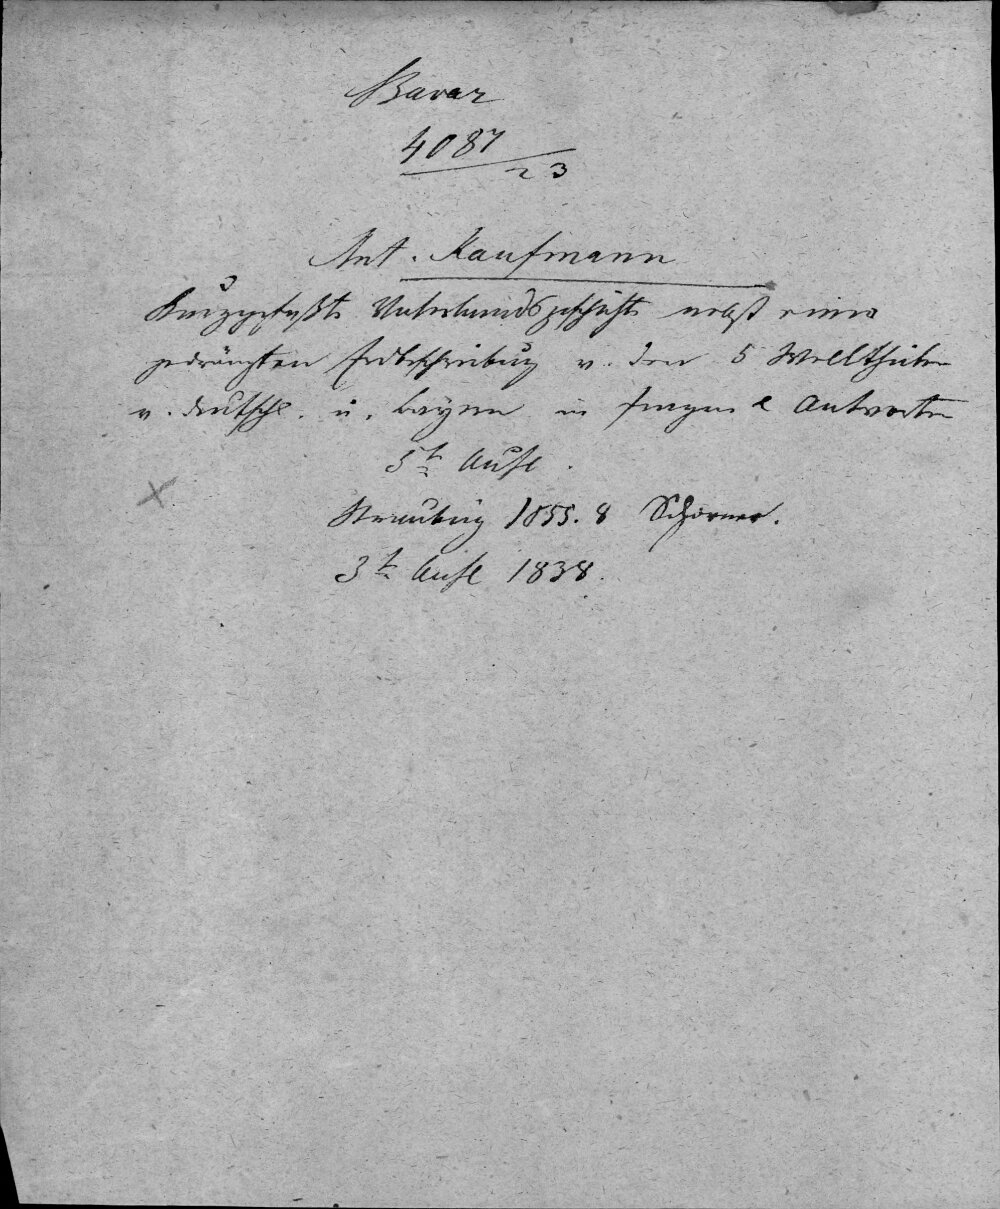 Bavar
4087
23
Ant. Kaufmann
Kurzgefaßte Vaterlandsgeschichte nebst einer
gedrängten Erdbeschreibung v. den 5 Welttheilen
v. Deutschl. u. Bayern in Fragen & Antworten
5te Aufl.
Straubing 1855. 8 Schorner.
3te Aufl 1838.